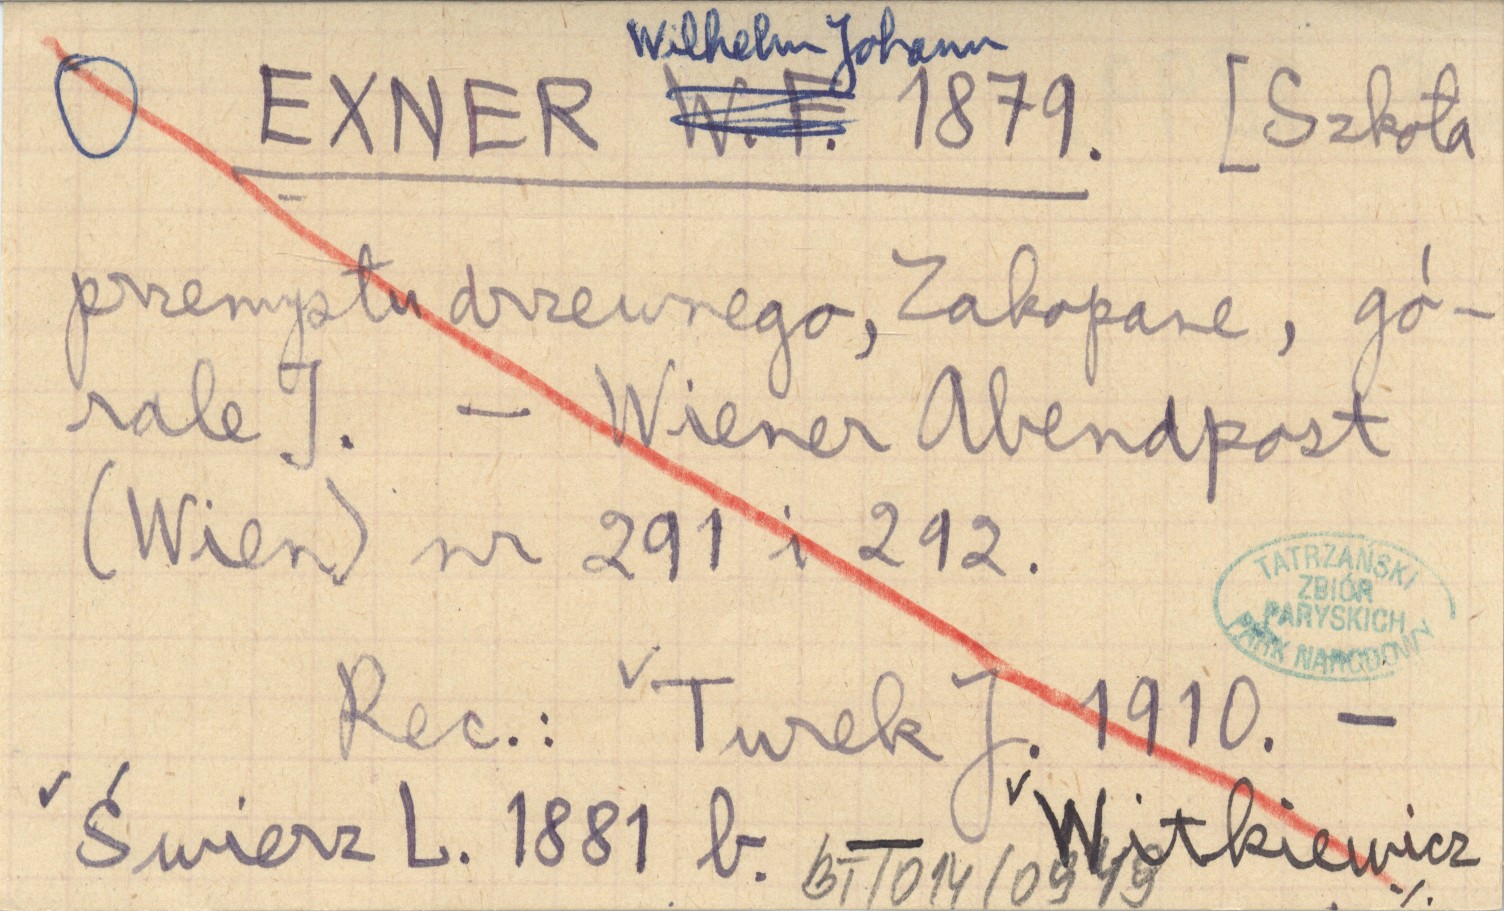 Wilhelm Johann
EXNER W. F. 1879. [Szkoła
przemysłu drzewnego, Zakopane, gó-
rale]. — Wiener Abendpost
(Wien) nr 291 i 292.
TATRZAŃSKI
ZBIÓR
PARYSKICH
PARK NARODOWY
Rec.: Turek J. 1910. —
Świerz L. 1881 b. — Witkiewicz
BT/014/0949 ./.